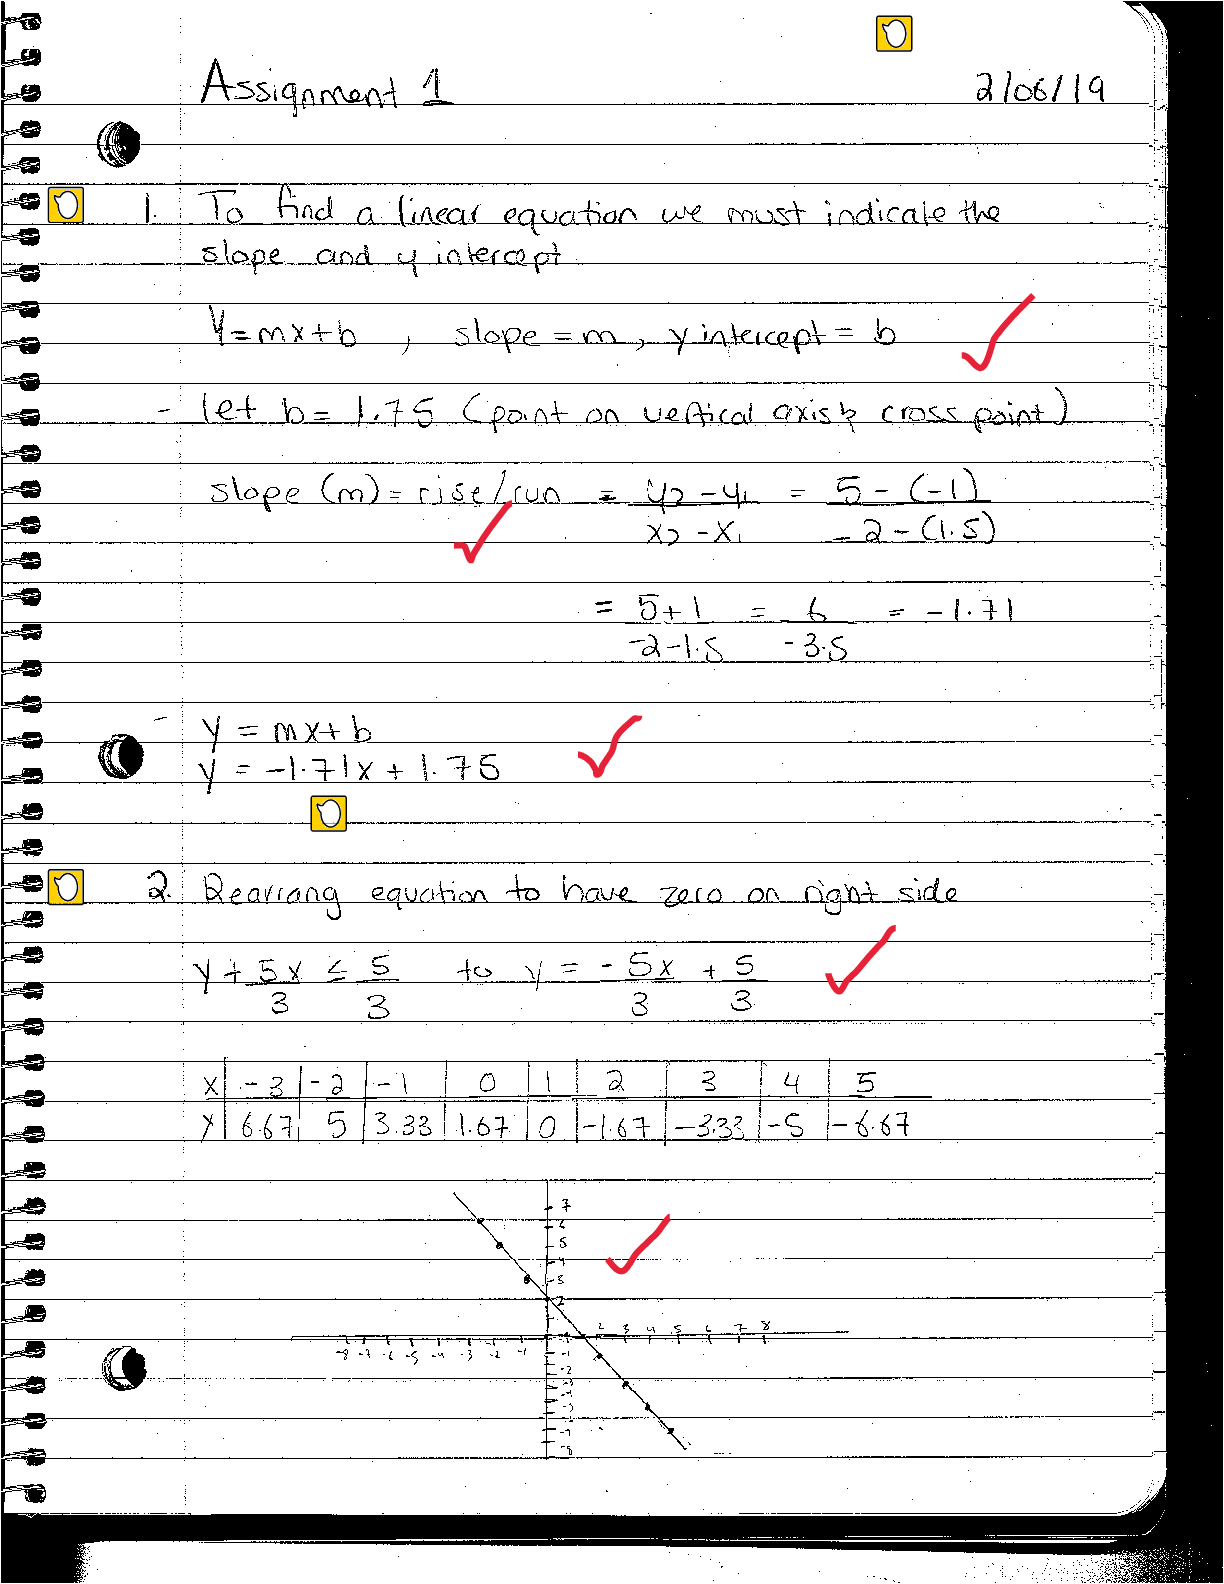 Assignment 1 2/06/19
1. To find a linear equation we must indicate the
slope and y intercept
y=mx+b , slope=m, y intercept = b
- let b=1.75 (point on vertical axis & cross point)
slope (m)= rise/run = y2-y1 / x2-x1 = 5-(-1) / -2-(1.5)
= 5+1 / -2-1.5 = 6 / -3.5 = -1.71
- y = mx+b
y = -1.71x + 1.75
2. Rearrang equation to have zero on right side
y + 5x/3 ≤ 5/3 to y = -5x/3 + 5/3
x -3 -2 -1 0 1 2 3 4 5
y 6.67 5 3.33 1.67 0 -1.67 -3.33 -5 -6.67
7
6
5
4
3
2
2 3 4 5 6 7 8
-8 -7 -6 -5 -4 -3 -2 -1
-1
-2
-7
-8